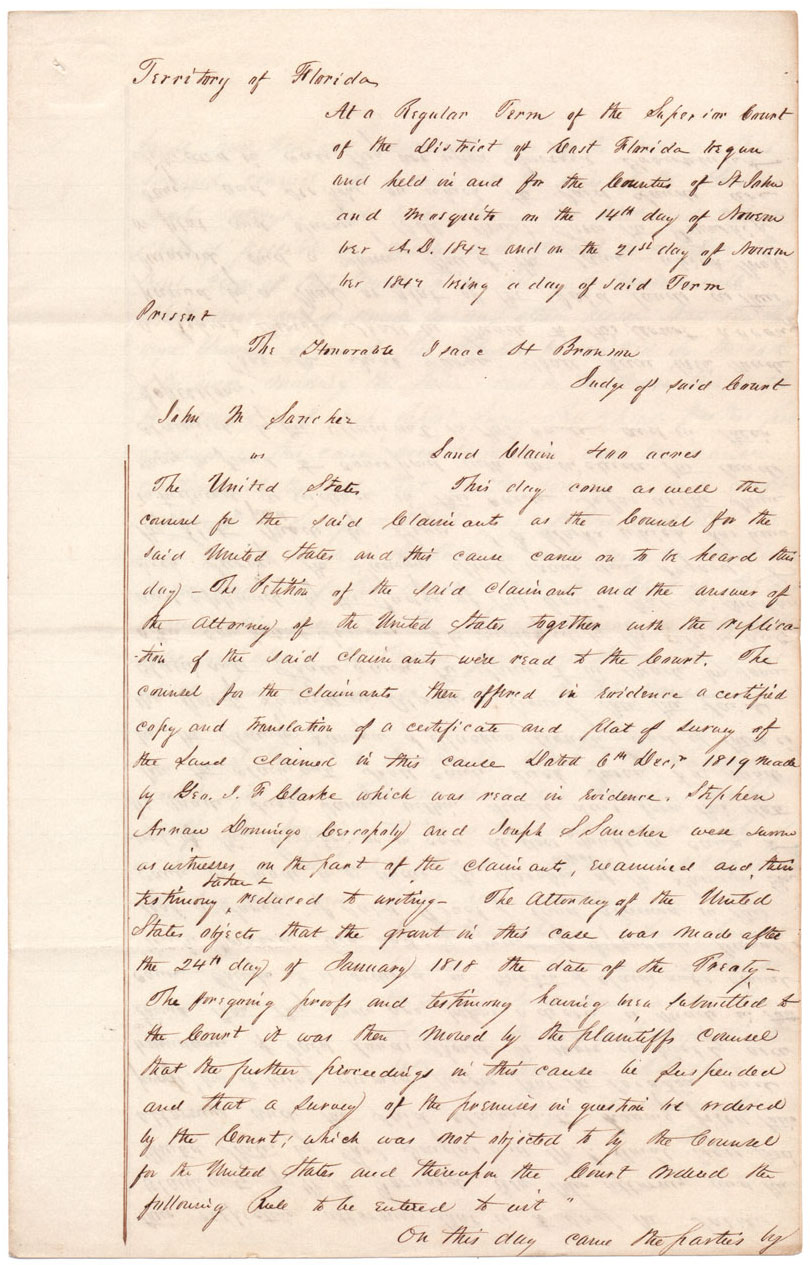 Territory of Florida
At a Regular Term of the Superior Court
of the District of East Florida begun
and held in and for the Counties of St John
and Mosquito on the 14th day of Novem
ber A.D. 1842 and on the 21st day of Novem
ber 1842 being a day of said Term
Present
The Honorable Isaac H Bronson
Judge of said Court
John M Sanchez
vs Land Claim 400 acres
The United States This day come as well the
counsel for the said Claimants as the Counsel for the
said United States and this cause came on to be heard this
day – The Petition of the said claimants and the answer of
the Attorney of the United States together with the replica-
-tion of the said claimants were read to the Court. The
counsel for the claimants then offered in evidence a certified
copy and translation of a certificate and plat of survey of
the Land claimed in this cause Dated 6th Decr 1819 made
by Geo. J. F Clarke which was read in evidence. Stephen
Arnau Domingo and Joseph S Sanchez were sworn
as witnesses on the part of the claimants, examined and their
testimony taken & reduced to writing – The Attorney of the United
States objects that the grant in this case was made after
the 24th day of January 1818 the date of the Treaty –
The foregoing proofs and testimony having been submitted to
the Court it was then moved by the plaintiffs counsel
that the further proceedings in this cause be suspended
and that a survey of the premises in question be ordered
by the Court; which was not objected to by the Counsel
for the United States and thereupon the Court ordered the
following Rule to be entered to wit "
On this day came the parties by